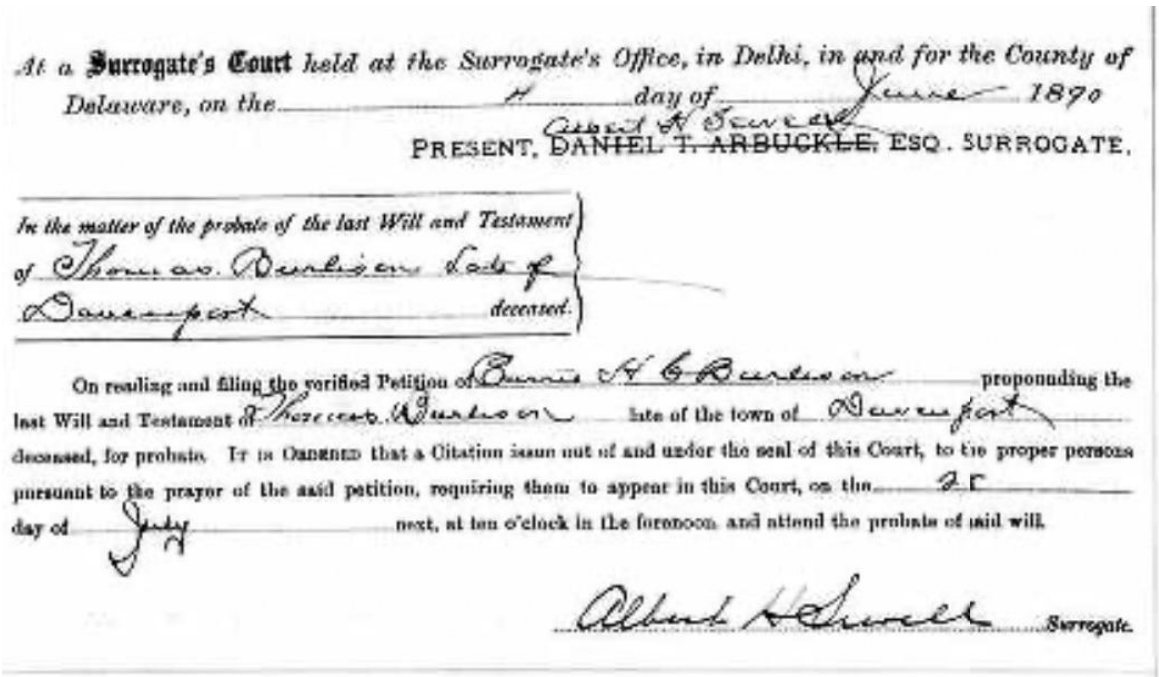 At a Surrogate's Court held at the Surrogate's Office, in Delhi, in and for the County of
Delaware, on the 4 day of June 1890
Albert H Sewell
PRESENT, DANIEL T. ARBUCKLE, ESQ. SURROGATE.
In the matter of the probate of the last Will and Testament
of Thomas Burlison Late of
Davenport deceased.
On reading and filing the verified Petition of H C Burlison propounding the
last Will and Testament of Thomas Burlison late of the town of Davenport
deceased, for probate. IT IS ORDERED that a Citation issue out of and under the seal of this Court, to the proper persons
pursuant to the prayer of the said petition, requiring them to appear in this Court, on the
day of July next, at ten o'clock in the forenoon, and attend the probate of said will.
Albert H Sewell Surrogate.